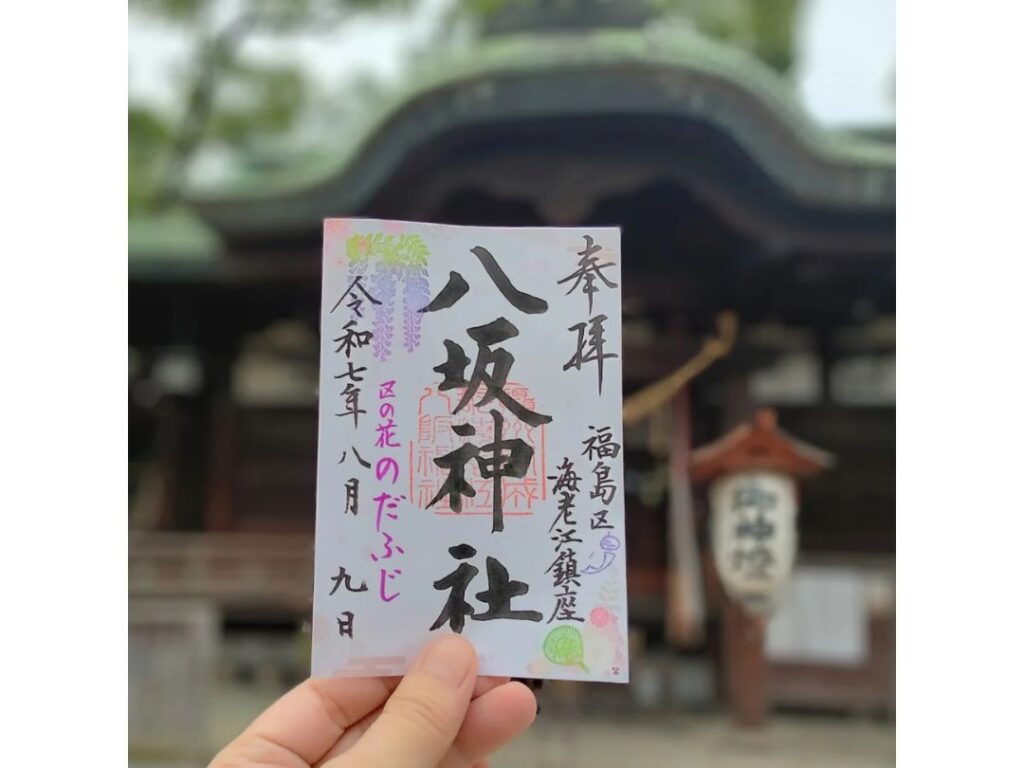 奉拝
福島区
海老江鎮座
八坂神社
区の花
のだふじ
令和七年八月九日
御神燈